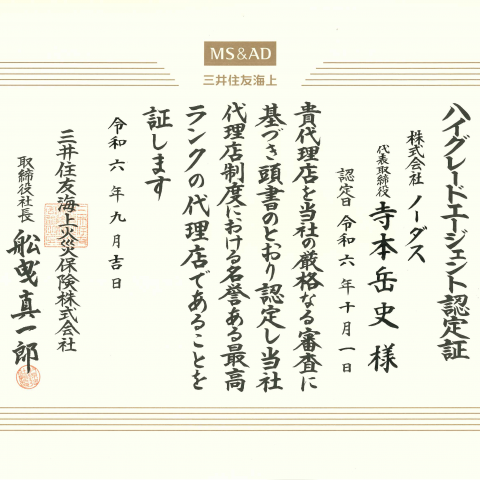 MS&AD
三井住友海上
ハイグレードエージェント認定証
株式会社 ノーダス
代表取締役 寺本岳史 様
認定日 令和六年十月一日
貴代理店を当社の厳格なる審査に
基づき頭書のとおり認定し当社
代理店制度における名誉ある最高
ランクの代理店であることを
証します
令和六年九月吉日
三井住友海上火災保険株式会社
取締役社長 舩曵真一郎